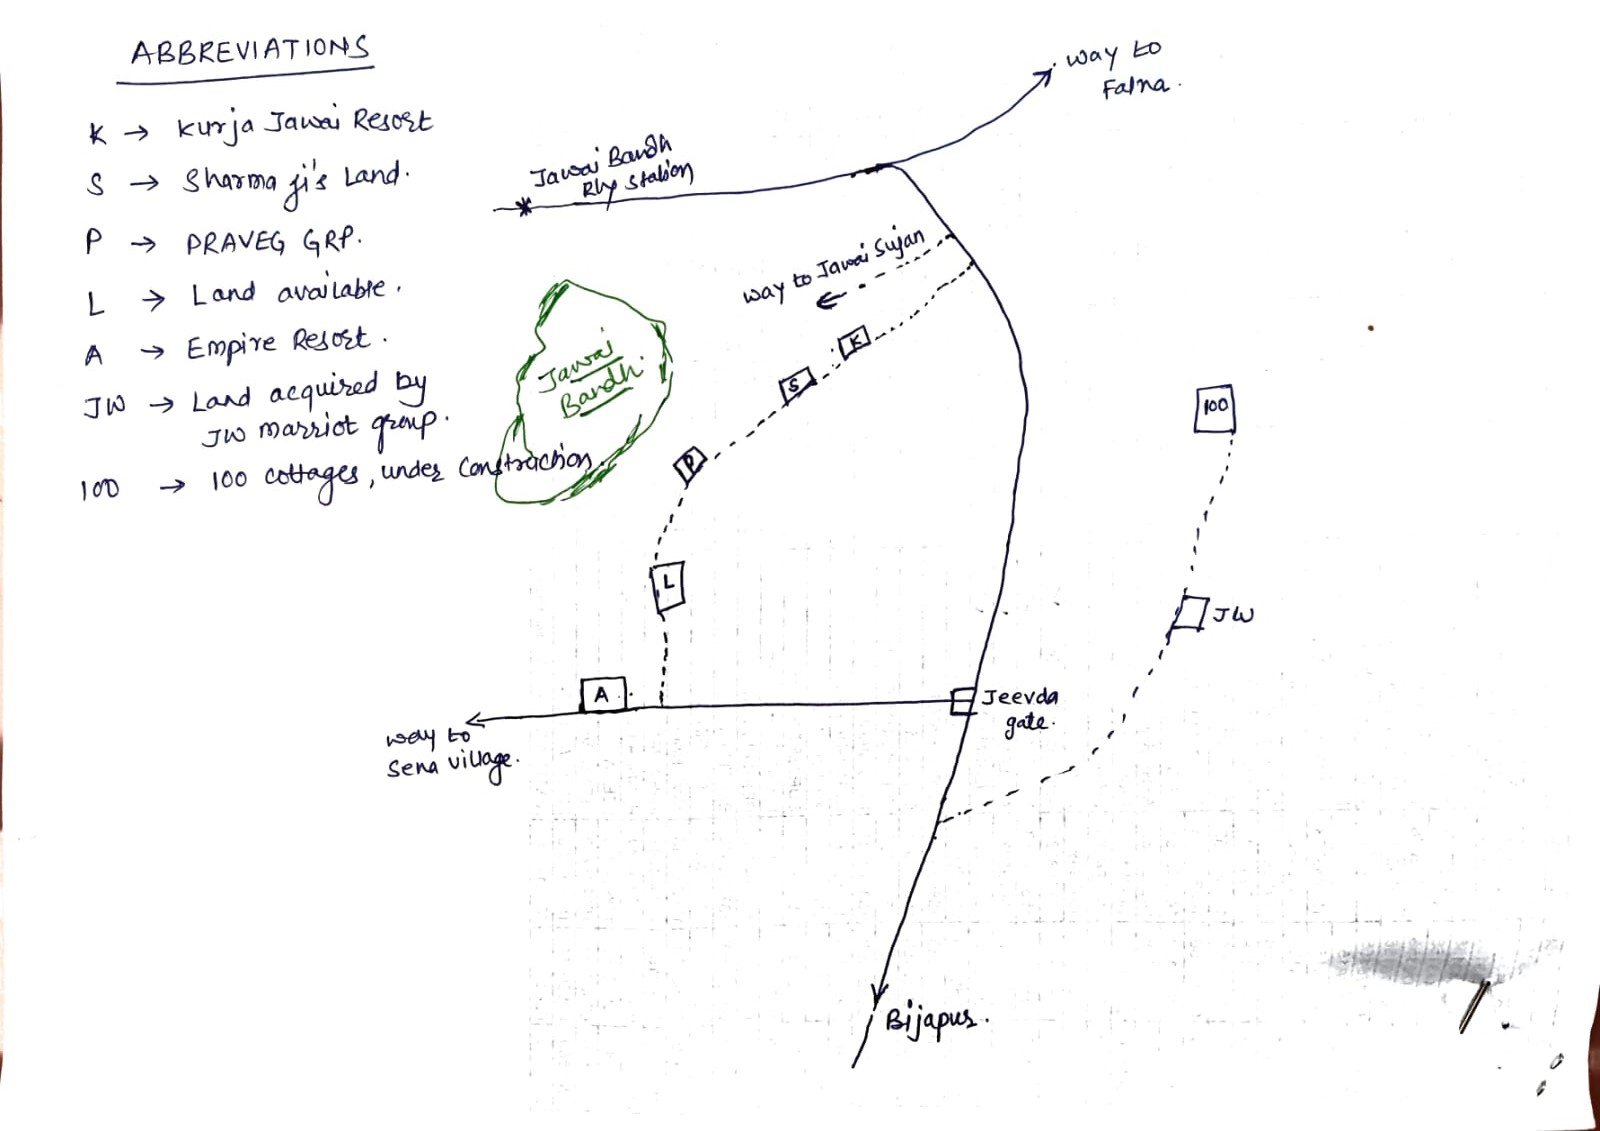 ABBREVIATIONS
K → Kurja Jawai Resort
S → Sharma ji's Land.
P → PRAVEG GRP.
L → Land available.
A → Empire Resort.
JW → Land acquired by
JW marriot group.
100 → 100 cottages, under construction.
way to
Falna.
Jawai Bandh
Rly station
way to Jawai Sujan
Jawai
Bandh.
K
S
P
L
A
100
JW
Jeevda
gate.
way to
Sena village.
Bijapur.